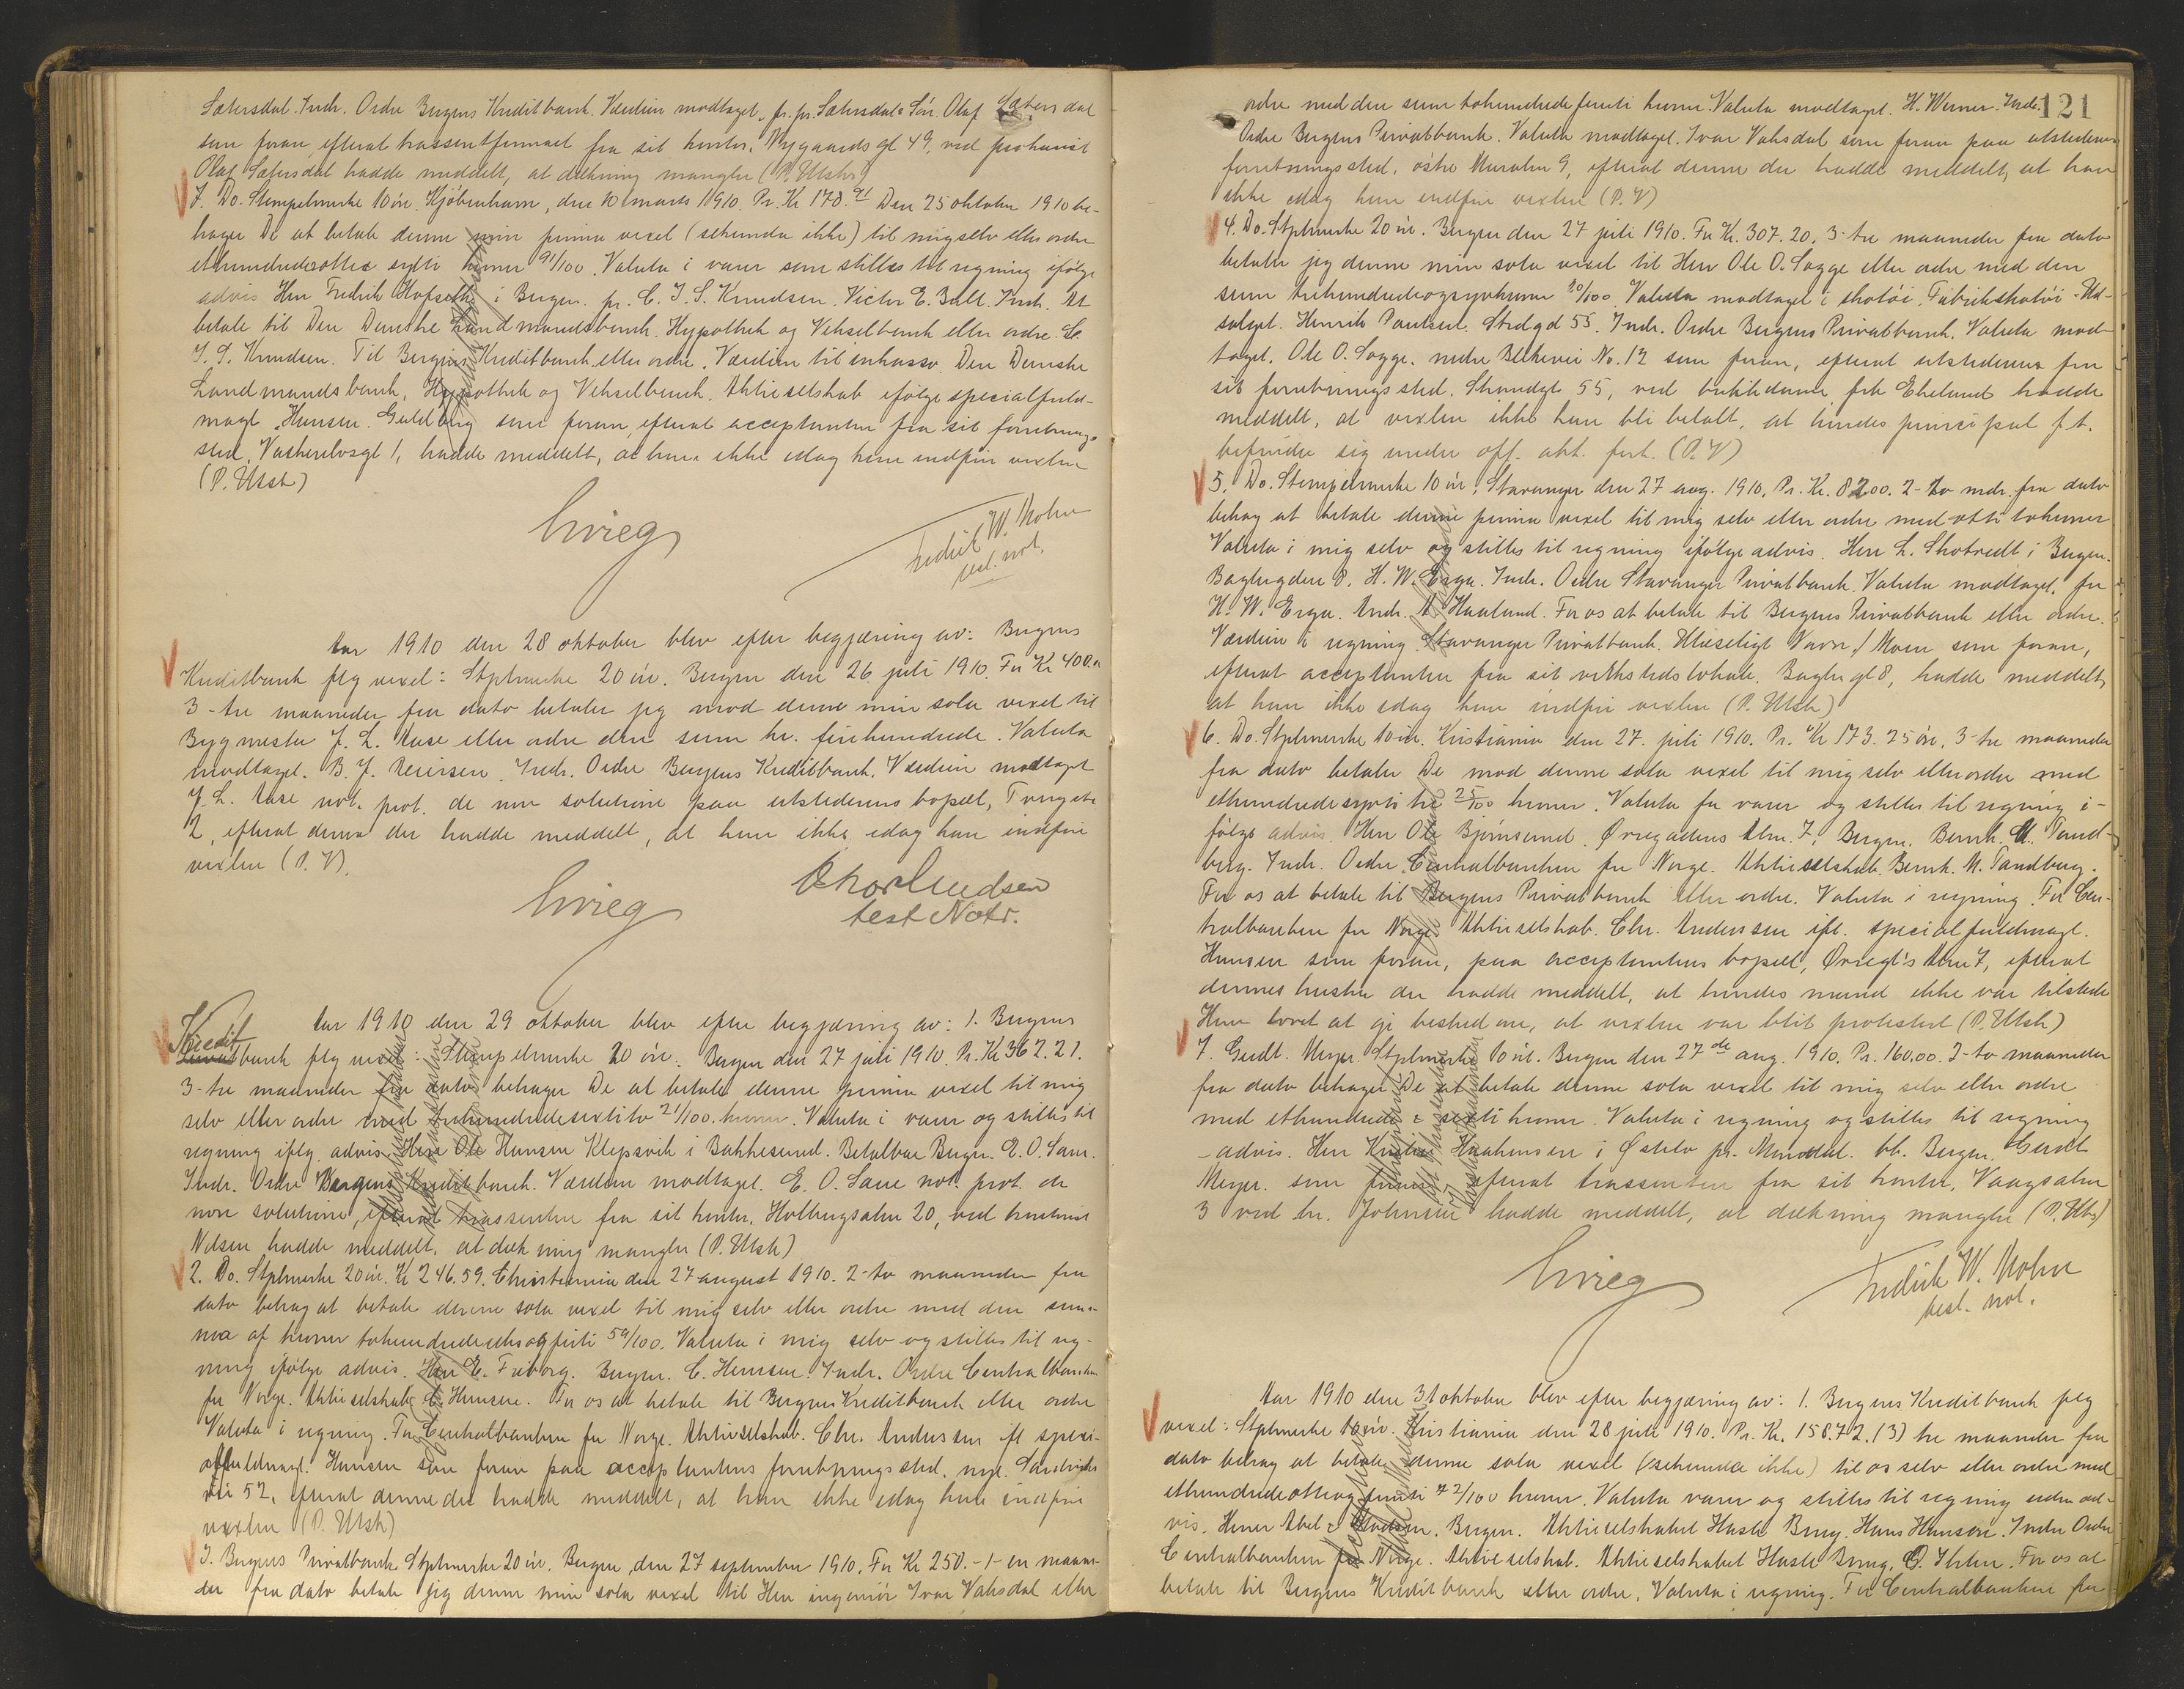 Sætersdal. Indr. Ordre Bergens Kreditbank. Værdien modtaget. pr. pr. Sætersdal & Søn. Olaf Sætersdal
som foran efterat trassentfirmaet fra sit kontor, Nygaardsgt 49, ved prokurist
Olaf Sætersdal hadde meddelt, at dækning mangler (P. Utsk.)
7. Do. Stempelmerke 10 øre. Kjöbenhavn, den 10 marts 1910. Pr. Kr 178.91 Den 25 oktober 1910 be-
hager De at betale denne min prima vexel (sekunda ikke) til mig selv eller ordre
ethundredeotte & sytti kroner 91/100. Valuta i varer som stilles til regning ifölge
advis Herr Fredrik Hopsett i Bergen. pr. C. J. S. Knudsen. Victor E. Ball. Indr. At
betale til Den Danske Landmandsbank. Hypothek og Vekselbank eller ordre. C.
J. S. Knudsen. Til Bergens Kreditbank eller ordre. Værdien til inkasso. Den Danske
Landmandsbank, Hypothek og Vekselbank. Aktieselskab ifölge specialfuld-
magt Hansen. Guldberg som foran, efterat acceptanten fra sit forretnings-
sted, Vaskerelvsgt 1, hadde meddelt, at han ikke idag kan indfri vexlen
(P. Utsk)
Grieg
Fredrik W. Mohn
besk. not.
Aar 1910 den 28 oktober blev efter begjæring av: Bergens
Kreditbank flg vexel: Stplmerke 20 öre. Bergen den 26 juli 1910. For Kr 400.
3-tre maaneder fra dato betaler jeg mod denne min sola vexel til
Bygmester J. L. Aase eller ordre den sum kr. firehundrede. Valuta
modtaget. B. J. Reiersen. Indr. Ordre Bergens Kreditbank. Værdien modtaget
J. L. Aase not. prot. de non solutione paa utstederens bopæl, Tverrgate
2, efterat denne der hadde meddelt, at han ikke idag kan indfri
vexlen (P. V).
Grieg
Thor Knudsen
test Notr.
Aar 1910 den 29 oktober blev efter begjæring av: 1. Bergens
Kredit
Privatbank flg vexel: Stempelmerke 20 öre. Bergen den 27 juli 1910. Pr. Kr 362.21.
3-tre maaneder fra dato behager De at betale denne prima vexel til mig
selv eller ordre med trehundredesextito 21/100 kroner. Valuta i varer og stilles til
regning iflg. advis. Herr Ole Hansen Klepsvik i Bakkesund. Betalbar Bergen. E. O. Sane.
Indr. Ordre Bergens Kreditbank. Værdien modtaget. E. O. Sane not. prot. de
non solutione, efterat trassenten fra sit kontor, Holbergsalm 20, ved kontorist
Nilsen hadde meddelt, at dækning mangler (P. Utsk)
2. Do. Stplmerke 20 öre. Kr 246.59. Christiania den 27 august 1910. 2-to maaneder fra
dato behag at betale denne sola vexel til mig selv eller ordre med den sum-
ma af kroner tohundredeseksogfirti 59/100. Valuta i mig selv og stilles til reg-
ning ifölge advis. Herr E. Friborg. Bergen. C. Hansen. Indr. Ordre Centralbanken
for Norge. Aktieselskab. C. Hansen. For os at betale til Bergens Kreditbank eller ordre
Valuta i regning. For Centralbanken for Norge. Aktieselskab. Chr. Anderssen ifl speci-
alfuldmagt. Hansen som foran paa acceptantens forretningssted, nye Sandviks
vei 52, efterat denne der hadde meddelt, at han ikke idag kan indfri
vexlen (P. Utsk)
3. Bergens Privatbank. Stplmerke 20 öre. Bergen, den 27 september 1910. For Kr 250.- 1-en maane-
der fra dato betaler jeg denne min sola vexel til Herr ingeniör Ivar Valisdal eller
121
ordre med den sum tohundredefemti kroner. Valuta modtaget. H. Werner. Indr.
Ordre Bergens Privatbank. Valuta modtaget. Ivar Valisdal som foran paa utstederens
forretningssted, östre Muralm 9, efterat denne der hadde meddelt, at han
ikke idag kan indfri vexlen (P. V)
4. Do. Stplmerke 20 öre. Bergen den 27 juli 1910. For Kr. 307.20. 3-tre maaneder fra dato
betaler jeg denne min sola vexel til Herr Ole O. Sagge eller ordre med den
sum trehundredeogsyvkroner 20/100. Valuta modtaget i skotöi. Fabrikskotöi-Ud-
salget. Henrik Paulsen. Strdgd 55. Indr. Ordre Bergens Privatbank. Valuta mod-
taget. Ole O. Sagge. nedre Blekevei No. 12 som foran, efterat utstederen fra
sit forretningssted, Strandgt 55, ved butikdame frk Ekelund hadde
meddelt, at vexlen ikke kan bli betalt, at hendes principal f.t.
befinder sig under off. akk. forh. (P. V)
5. Do. Stempelmerke 10 öre, Stavanger den 27 aug. 1910. Pr. Kr. 82.00. 2-to mdr. fra dato
behag at betale denne prima vexel til mig selv eller ordre med otti tokroner
Valuta i mig selv og stilles til regning ifölge advis. Herr L. Skotvedt i Bergen.
Baglergden 8. H. W. Erga. Indr. Ordre Stavanger Privatbank. Valuta modtaget. for
H. W. Erga. Andr. A. Haaland. For os at betale til Bergens Privatbank eller ordre.
Værdien i regning. Stavanger Privatbank. / Moen som foran,
efterat acceptanten fra sit verkstedslokale, Baglergt 8, hadde meddelt,
at han ikke idag kan indfri vexlen (P. Utsk)
6. Do. Stplmerke 10 öre. Kristiania den 27. juli 1910. Pr. Kr 173.25 öre. 3-tre maaneder
fra dato betaler De mod denne sola vexel til mig selv eller ordre med
ethundredesyvtitre 25/100 kroner. Valuta for varer og stilles til regning i-
fölge advis. Herr Ole Björnsund. Øvregadens Alm. 7, Bergen. Bernh. M. Tand-
berg. Indr. Ordre Centralbanken for Norge. Aktieselskab. Bernh. M. Tandberg.
For os at betale til Bergens Privatbank eller ordre. Valuta i regning. For Cen-
tralbanken for Norge. Aktieselskab. Chr. Anderssen ifl. specialfuldmagt.
Hansen som foran, paa acceptantens bopæl, Øvregt's Alm 7, efterat
dennes hustru der hadde meddelt, at hendes mand ikke var tilstede
Hun lovet at gi besked om, at vexlen var blit protestert (P. Utsk)
7. Gerdt. Meyer. Stplmerke 10 öre. Bergen den 27de aug. 1910. Pr. 160.00. 2-to maaneder
fra dato behager De at betale denne sola vexel til mig selv eller ordre
med ethundrede & sexti kroner. Valuta i regning og stilles til regning
- advis. Herr Kristian Haakonsen i Østelv pr. Mundal. bb. Bergen. Gerdt
Meyer. som foran, efterat trassenten fra sit kontor, Vaagsalm
3 ved hr. Johnsen hadde meddelt, at dækning mangler (P. Utsk)
Grieg
Fredrik W. Mohn
besk. not.
Aar 1910 den 31 oktober blev efter begjæring av: 1. Bergens Kreditbank flg
vexel: Stplmerke 10 öre. Kristiania den 28 juli 1910. Pr. Kr. 158.72. (3) tre maaneder fra
dato behag at betale denne sola vexel (sekunda ikke) til os selv eller ordre med
ethundredeotteogfemti 72/100 kroner. Valuta varer og stilles til regning uden ad-
vis. Herrer Abel & Bergen. Aktieselskabet Hasle Brug. Hans Hansen. Indr Ordre
Centralbanken for Norge. Aktieselskab. Aktieselskabet Hasle Brug. O. Ihlen. For os at
betale til Bergens Kreditbank eller ordre. Valuta i regning. For Centralbanken for